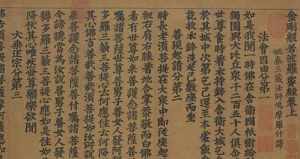 金剛般若波羅蜜經卷上
姚秦三藏法師鳩摩羅什譯
法會因由分第一
如是我聞一時佛在舍衛國祇樹給孤
獨園與大比丘眾千二百五十人俱爾時
世尊食時著衣持鉢入舍衛大城乞食
於其城中次第乞已還至本處飯食訖
收衣鉢洗足已敷座而坐
善現啟請分第二
時長老須菩提在大眾中即從座起偏
袒右肩右膝著地合掌恭敬而白佛言
希有世尊如來善護念諸菩薩善付
囑諸菩薩世尊善男子善女人發阿耨
多羅三藐三菩提心云何應住云何降伏
其心佛言善哉善哉須菩提如汝所說
如來善護念諸菩薩善付囑諸菩薩汝
今諦聽當為汝說善男子善女人發阿
耨多羅三藐三菩提心應如是住如是
降伏其心唯然世尊願樂欲聞
大乘正宗分第三